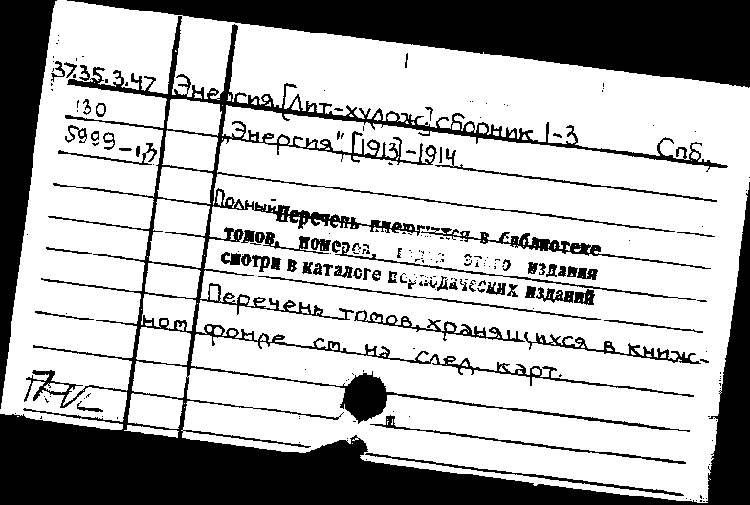 37.35.3.47 Энергия. [Лит.-худож.] сборник 1-3 Спб.,
130 „Энергия", [1913]-1914.
5999-1,3
Полный Перечень имеющихся в библиотеке
томов, номеров, годов этого издания
смотри в каталоге периодических изданий
Перечень томов, хранящихся в книж-
ном фонде см. на след. карт.